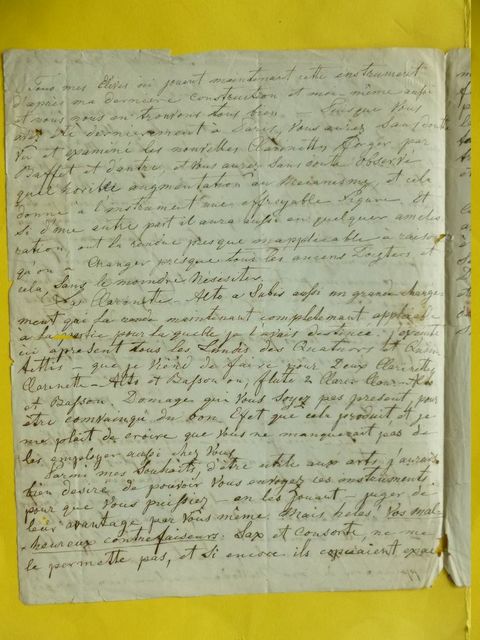 Tous mes Eleves ici jouent maintenant cette instrument
d'apres ma derniere construction et moi-même aussi
et nous nous en trouvons tous bien. Lorsque Vous
avez été dernierement à Paris, Vous aurez sans doute
Vu et examiné les nouvelles Clarinettes forger par
Buffet et d'autre, et Vous aurez sans doute observé
quel horible augmentation au Mecanisme, et cela
donne à l'instrument une effroyable figure. Et
si d'une autre part il aura aussi en quelque amelio
ration, on l'a rendue presque inapplicable à raison
qu'on a changer presque tous les anciens Doigters et
cela, Sans le moindre Necesites.
Les Clarinette-Alto a Subis aussi un grand change-
ment qui la rend maintenant completment applicable
à la partie pour la quelle je l'avais destinée; j'execute
ici apresent tous les Lundis des Quatuors et Quin-
tettes - que je Viens de faire pour Deux Clarinettes
Clarinette-Alto et Basson ou, flute 2 Clar: Clar-Alto
et Basson. Domage qui Vous Soyez pas present, pour
être convainqu du bon Efet que cela produit et je
me plait de croire que Vous ne manquerat pas de
les employer aussi chez Vous
Parmi mes Souhaits, d'être utile aux arts, j'aurais
bien desire de pouvoir Vous envoyez ces instruments
pour que Vous puissiez en les Jouant juger de
leur avantage par Vous même. Mais, helas! Vos mal-
heureux contrefaiseurs: Sax et Consorte, ne me
le permette pas, et Si encore ils copieraient exac